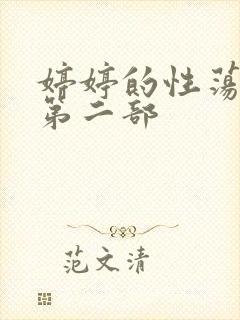 婷婷的性荡
第二部
范文清